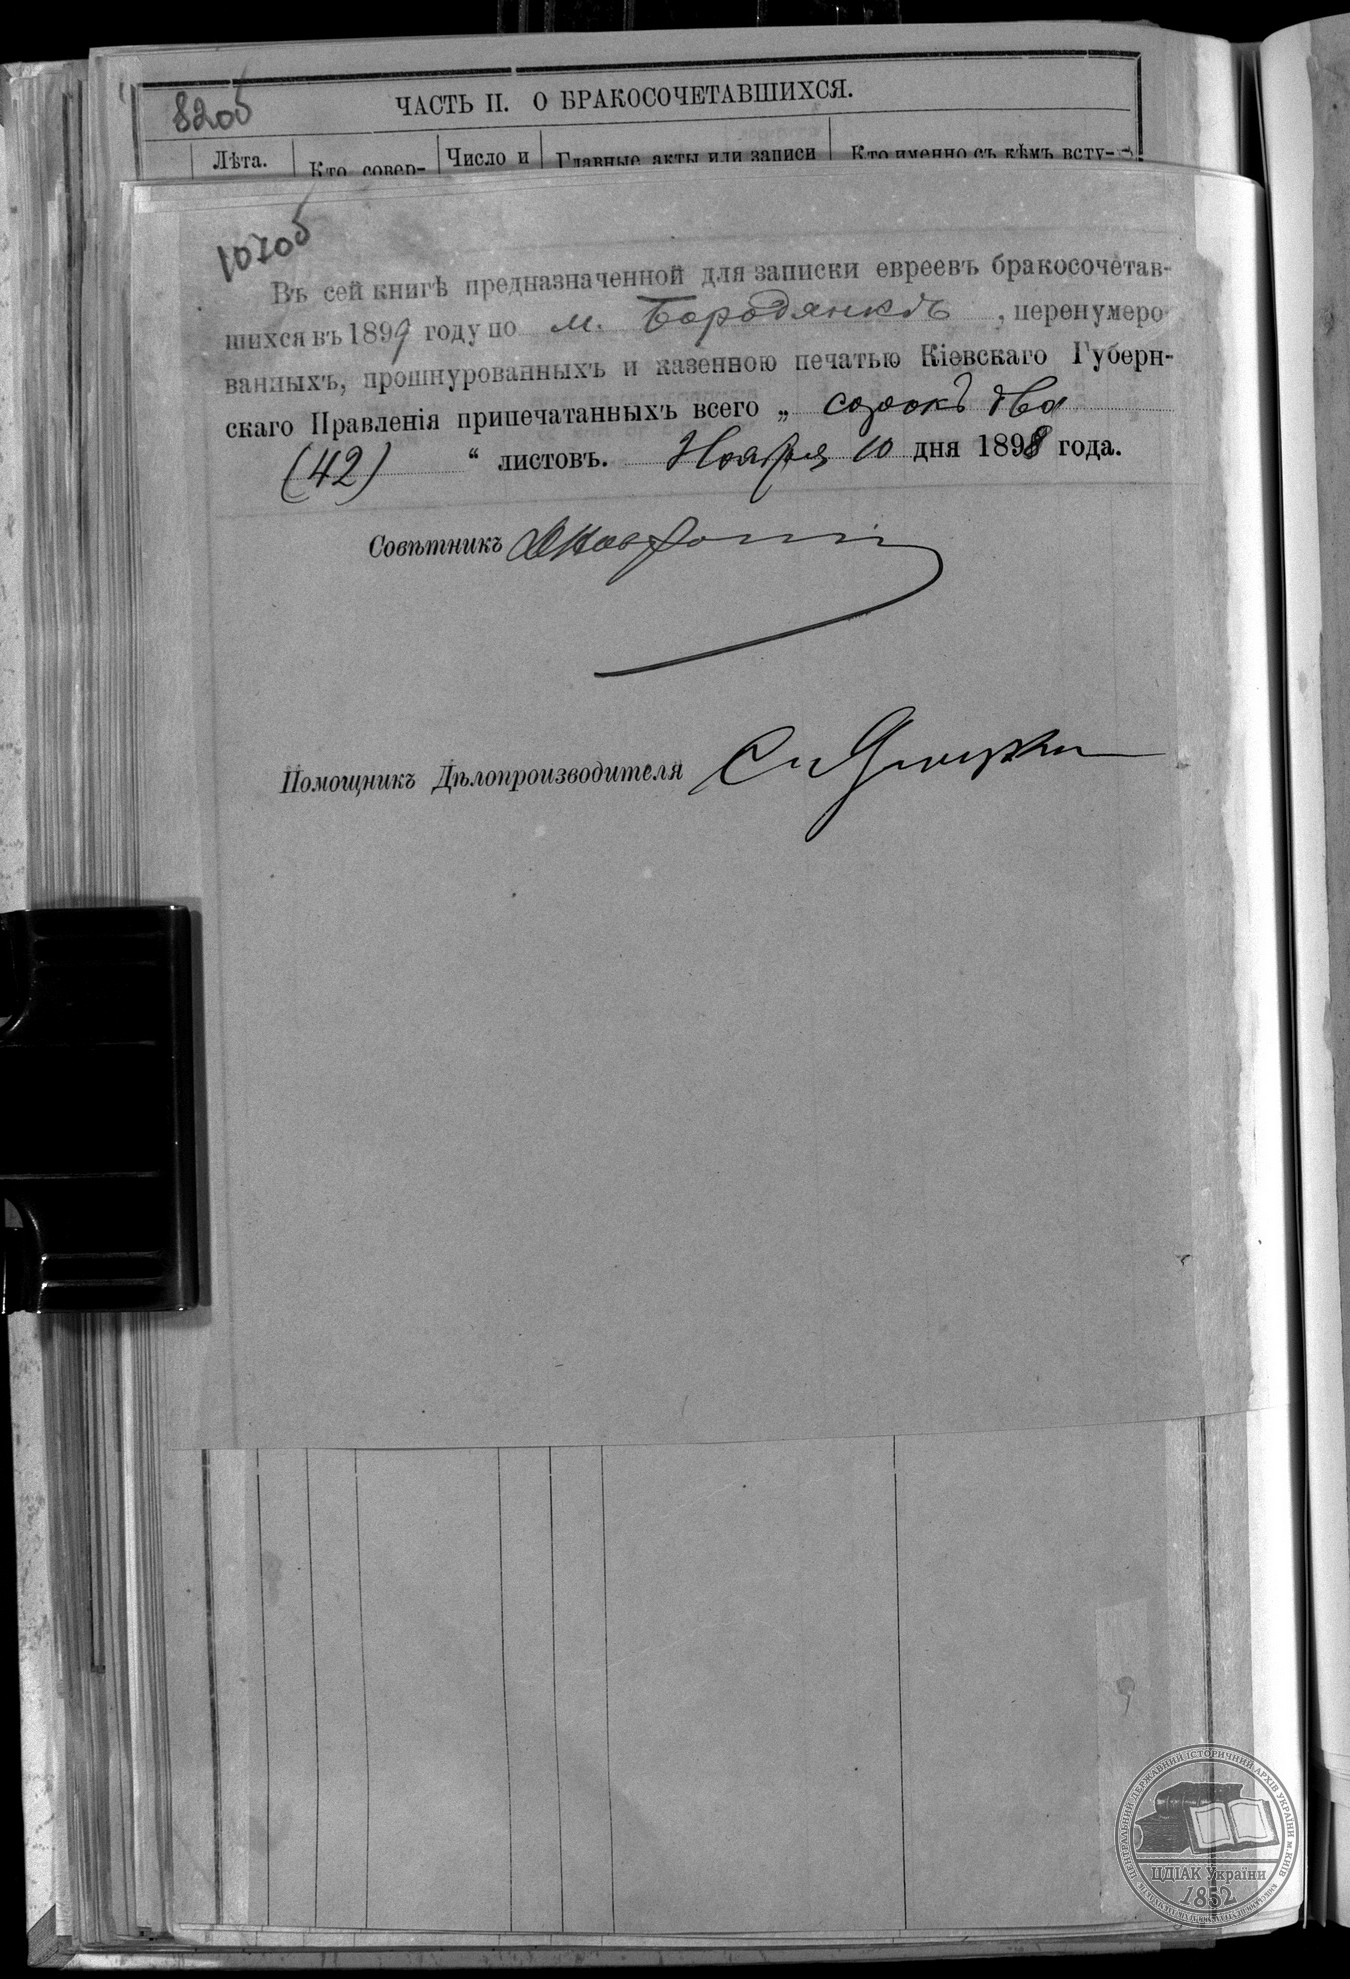 82об
ЧАСТЬ II. О БРАКОСОЧЕТАВШИХСЯ.
Лѣта. Кто совер- Число и Главные акты или записи Кто именно съ кѣмъ всту-
107об
Въ сей книгѣ предназначенной для записки евреевъ бракосочетав-
шихся въ 1899 году по м. Бородянкѣ, перенумеро
ванныхъ, прошнурованныхъ и казенною печатью Кіевскаго Губерн-
скаго Правленія припечатанныхъ всего „ сорокъ два
(42) “ листовъ. Ноября 10 дня 1898 года.
Совѣтникъ
Помощникъ Дѣлопроизводителя
ЦЕНТРАЛЬНИЙ ДЕРЖАВНИЙ ІСТОРИЧНИЙ АРХІВ УКРАЇНИ М. КИЇВ
ЦДІАК України
1852